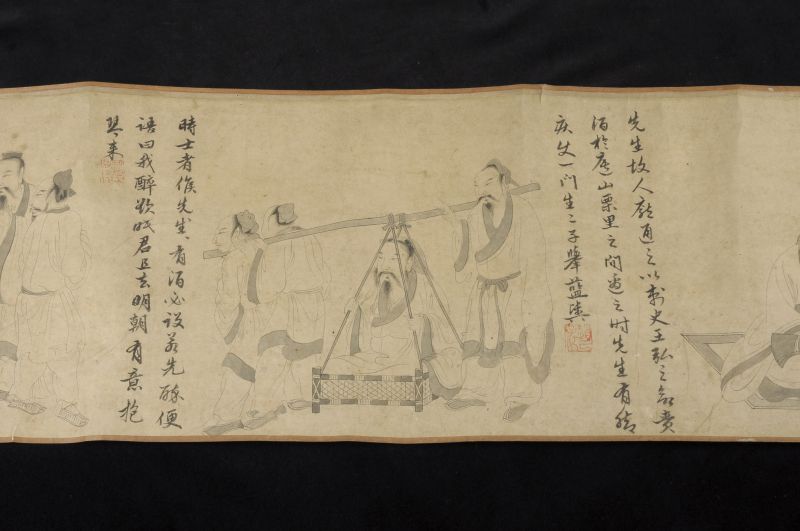 先生故人龐通之以刺史王弘之命賚
酒於廬山栗里之間邀之時先生有脚
疾使一門生二子舉藍輿
時士者候先生有酒必設若先醉便
語曰我醉欲眠君且去明朝有意抱
琴來